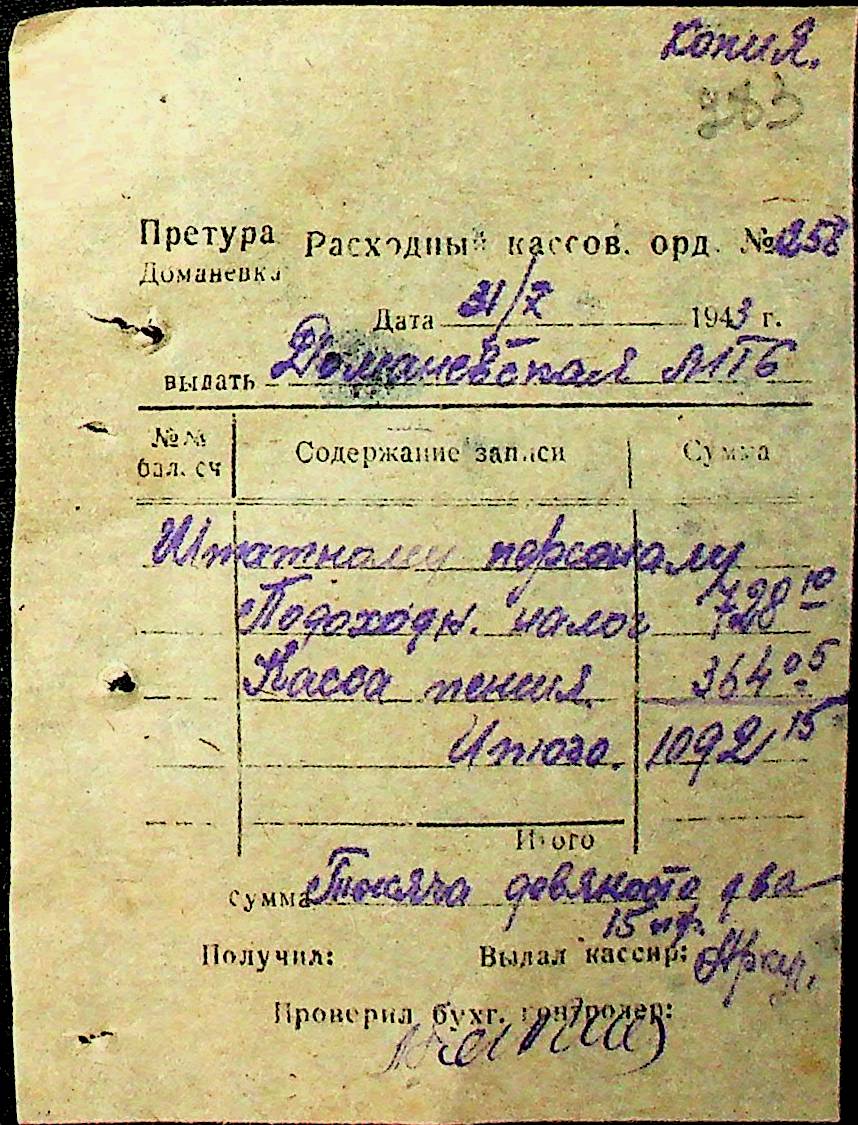 Копия.
283
Претура Расходный кассов. орд. № 258
Доманевка
Дата 31/X 1943 г.
выдать Доманевская МТБ
№№ бал. сч Содержание записи Сумма
Штатному персоналу
Подоходн. налог 728 10
Касса пенсия 364 05
Итого. 1092 15
Итого
Сумма Тысяча девяносто два
15 пф.
Получил: Выдал кассир:
Проверил бухг. контролер: